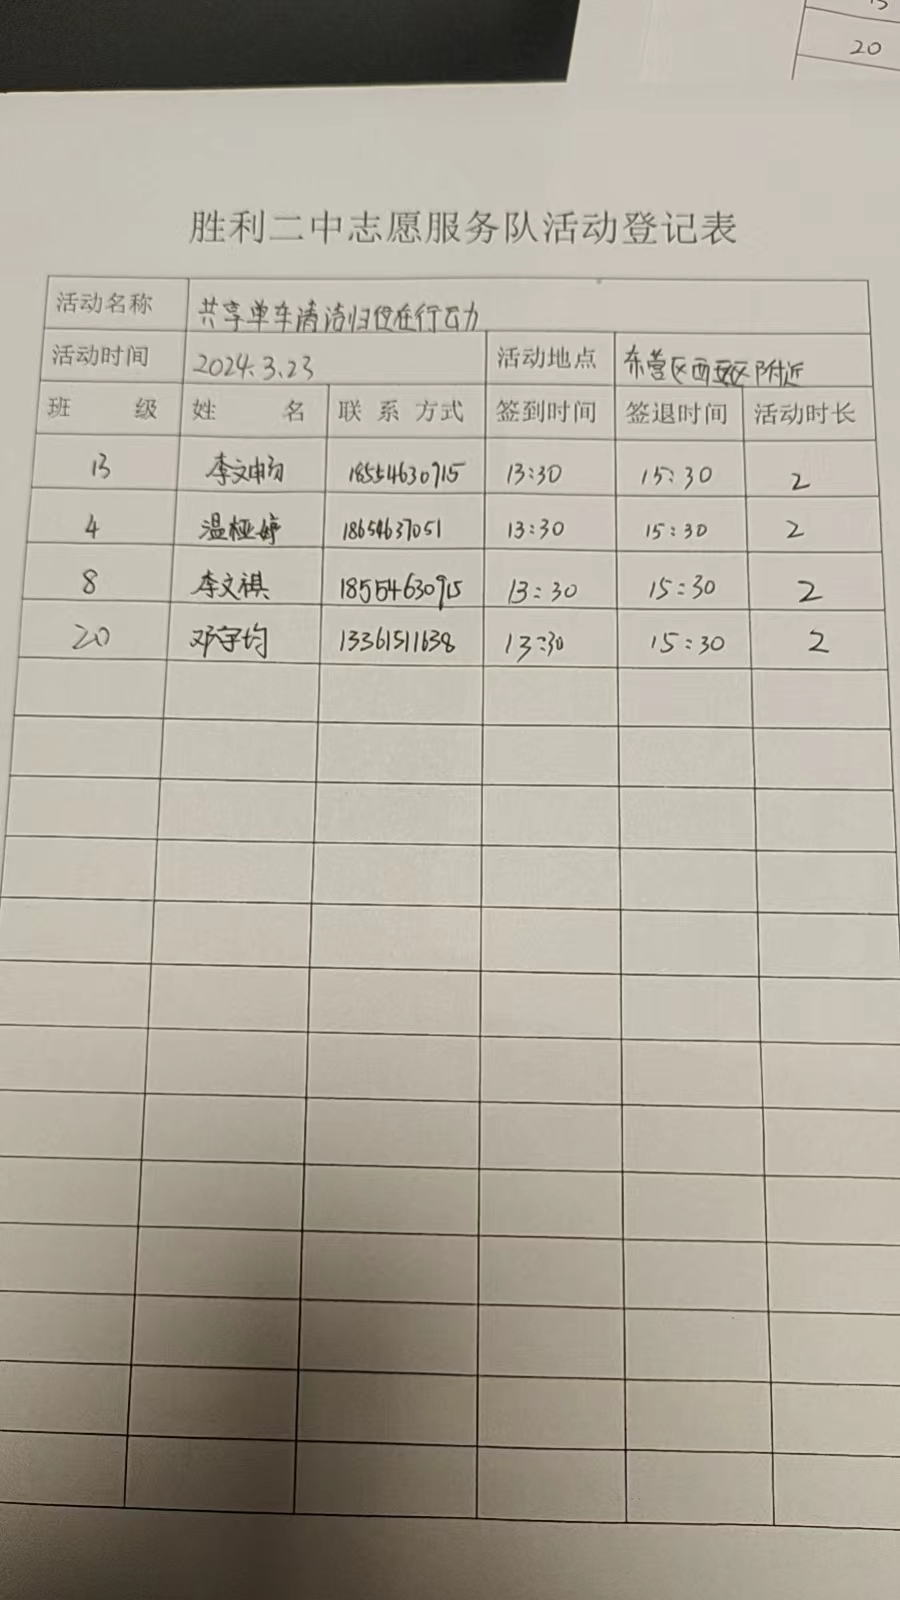 20
胜利二中志愿服务队活动登记表
活动名称 共享单车清洁归位在行动
活动时间 2024.3.23 活动地点 东营区西 附近
班 级 姓 名 联 系 方式 签到时间 签退时间 活动时长
13 李文畅 18554630915 13:30 15:30 2
4 温桠婷 18654637051 13:30 15:30 2
8 李文祺 18554630915 13:30 15:30 2
20 邓宇均 13361511638 13:30 15:30 2